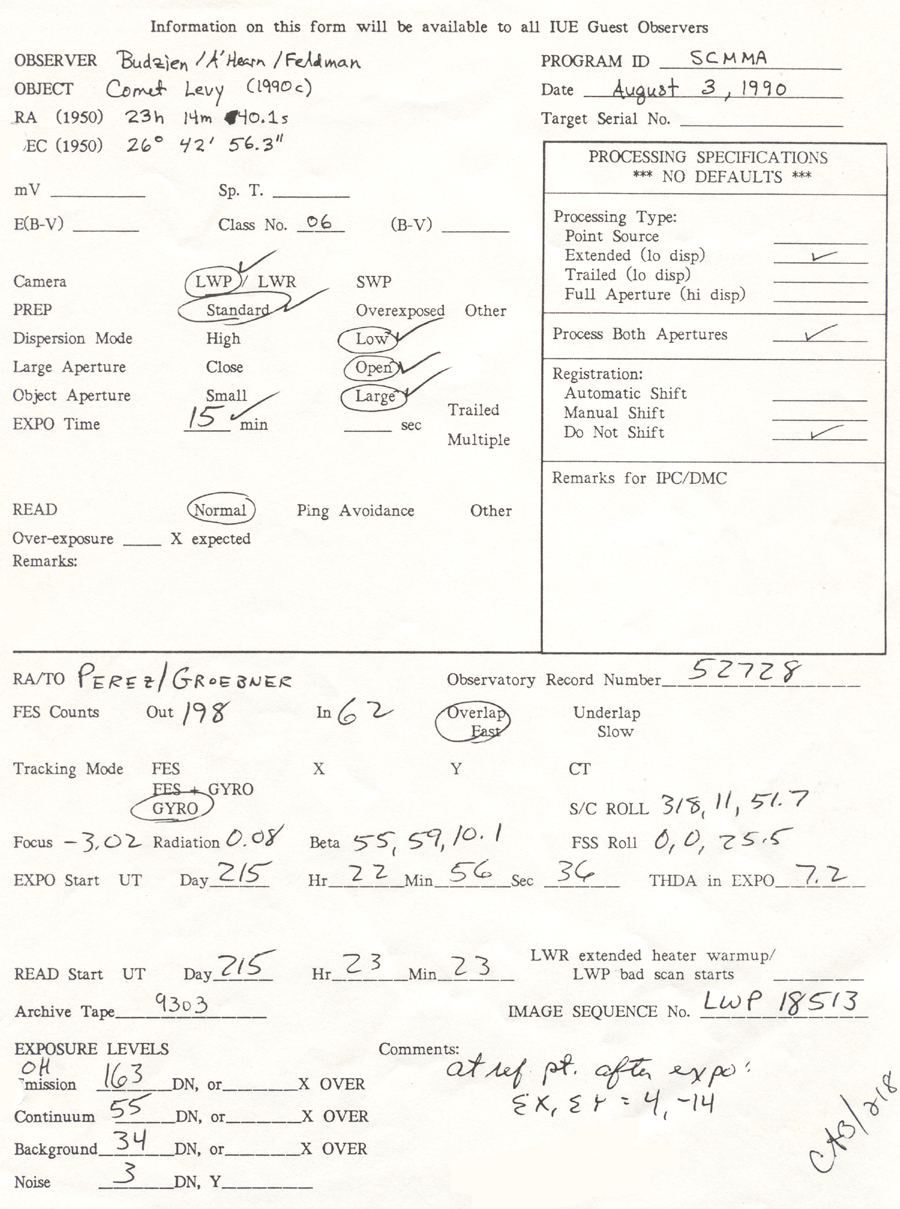 Information on this form will be available to all IUE Guest Observers
OBSERVER Budzien / A'Hearn / Feldman
PROGRAM ID SCMMA
OBJECT Comet Levy (1990c)
Date August 3, 1990
RA (1950) 23h 14m 40.1s
Target Serial No.
EC (1950) 26° 42' 56.3"
PROCESSING SPECIFICATIONS
*** NO DEFAULTS ***
mV Sp. T.
E(B-V) Class No. 06 (B-V)
Processing Type:
Point Source
Extended (lo disp) ✓
Trailed (lo disp)
Full Aperture (hi disp)
Camera LWP / LWR SWP
PREP Standard Overexposed Other
Dispersion Mode High Low
Process Both Apertures ✓
Large Aperture Close Open
Object Aperture Small Large
Registration:
Automatic Shift
Manual Shift
Do Not Shift ✓
Trailed
EXPO Time 15 min sec
Multiple
Remarks for IPC/DMC
READ Normal Ping Avoidance Other
Over-exposure X expected
Remarks:
RA/TO PEREZ/GROEBNER
Observatory Record Number 52728
FES Counts Out 198 In 62 Overlap Underlap
Fast Slow
Tracking Mode FES X Y CT
FES + GYRO
GYRO
S/C ROLL 318, 11, 51.7
Focus -3.02 Radiation 0.08 Beta 55, 59, 10.1 FSS Roll 0, 0, 25.5
EXPO Start UT Day 215 Hr 22 Min 56 Sec 36 THDA in EXPO 7.2
LWR extended heater warmup/
READ Start UT Day 215 Hr 23 Min 23 LWP bad scan starts
Archive Tape 9303 IMAGE SEQUENCE No. LWP 18513
EXPOSURE LEVELS
OH
mission 163 DN, or X OVER
Continuum 55 DN, or X OVER
Background 34 DN, or X OVER
Noise 3 DN, Y
Comments:
at ref pt. after expo:
ΣX, ΣY = 4, -14
CAB/218